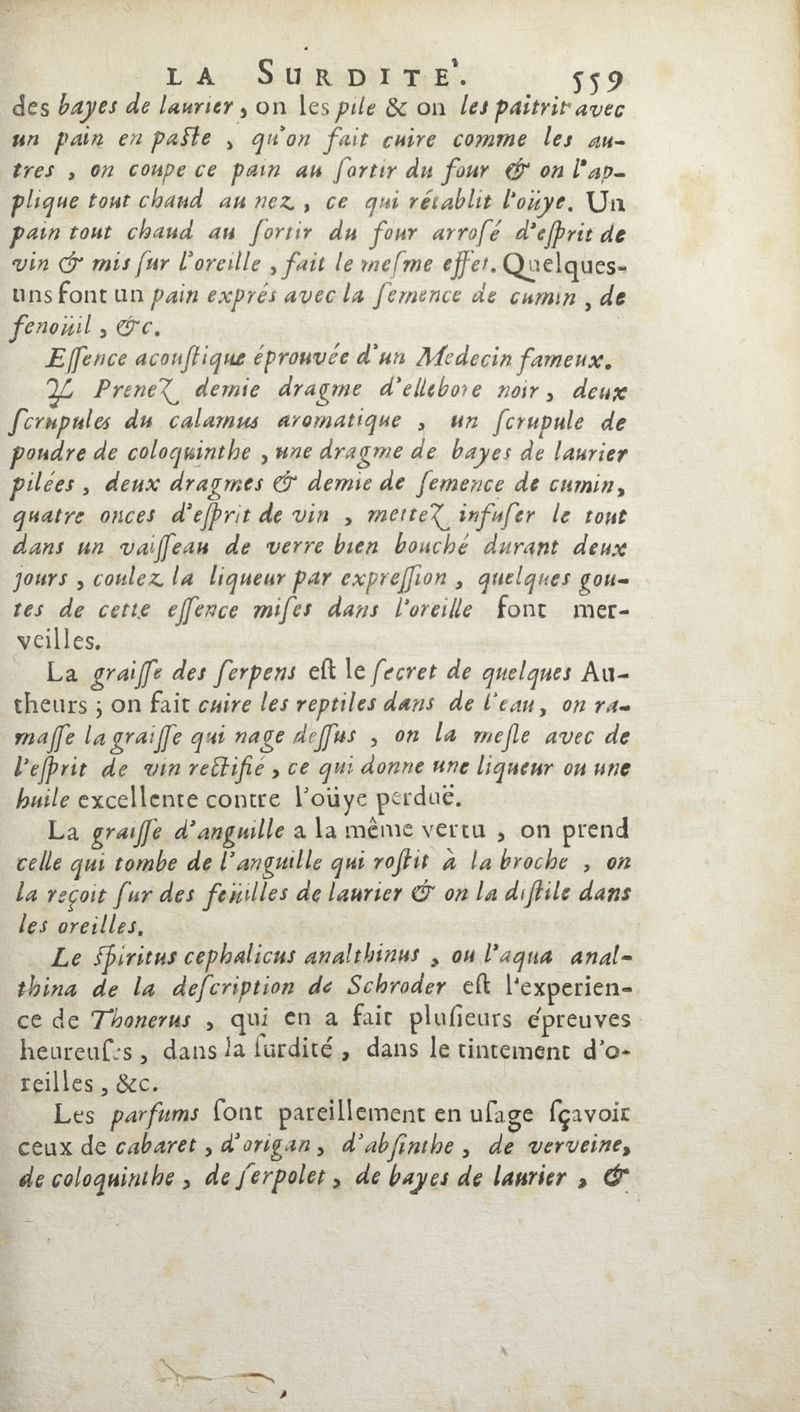 LA SURDITE'. 559
des bayes de laurier, on les pile & on les paitrit avec
un pain en paste, qu'on fait cuire comme les au-
tres, on coupe ce pain au sortir du four & on l'ap-
plique tout chaud au nez, ce qui rétablit l'oüye. Un
pain tout chaud au sortir du four arrosé d'esprit de
vin & mis sur l'oreille, fait le mesme effet. Quelques-
uns font un pain exprés avec la semence de cumin, de
fenoüil, &c.
Essence acoustique éprouvée d'un Medecin fameux.
℞ Prenez demie dragme d'ellebore noir, deux
scrupules du calamus aromatique, un scrupule de
poudre de coloquinthe, une dragme de bayes de laurier
pilées, deux dragmes & demie de semence de cumin,
quatre onces d'esprit de vin, mettez infuser le tout
dans un vaisseau de verre bien bouché durant deux
jours, coulez la liqueur par expression, quelques gou-
tes de cette essence mises dans l'oreille font mer-
veilles.
La graisse des serpens est le secret de quelques Au-
theurs; on fait cuire les reptiles dans de l'eau, on ra-
masse la graisse qui nage dessus, on la mesle avec de
l'esprit de vin rectifié, ce qui donne une liqueur ou une
huile excellente contre l'oüye perduë.
La graisse d'anguille a la même vertu, on prend
celle qui tombe de l'anguille qui rostit à la broche, on
la reçoit sur des feüilles de laurier & on la distile dans
les oreilles.
Le Spiritus cephalicus analthinus, ou l'aqua anal-
thina de la description de Schroder est l'experien-
ce de Thonerus, qui en a fait plusieurs épreuves
heureuses, dans la surdité, dans le tintement d'o-
reilles, &c.
Les parfums sont pareillement en usage sçavoir
ceux de cabaret, d'origan, d'absinthe, de verveine,
de coloquinthe, de serpolet, de bayes de laurier, &